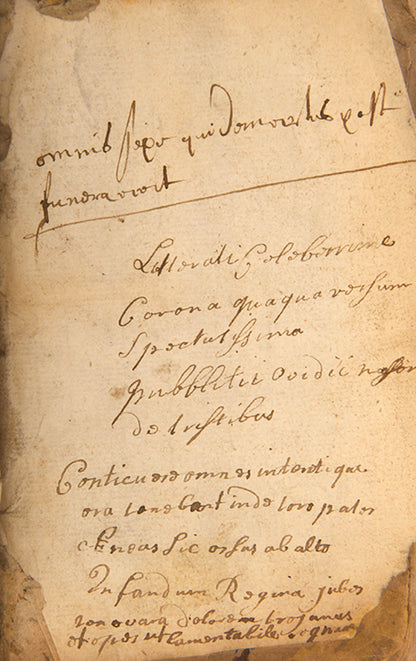 omnis sepe quidem
funera
Litterati Celeberrime
Corona quaqua versum
Spectatissima
Pubblitii Ovidii nason
de tristibus
Conticuere omnes intentique
ora tenebant inde toro pater
Eneas sic orsus ab alto
Infandum Regina jubes
renovara dolorem trojanas
et opes ut lamentabile regnum